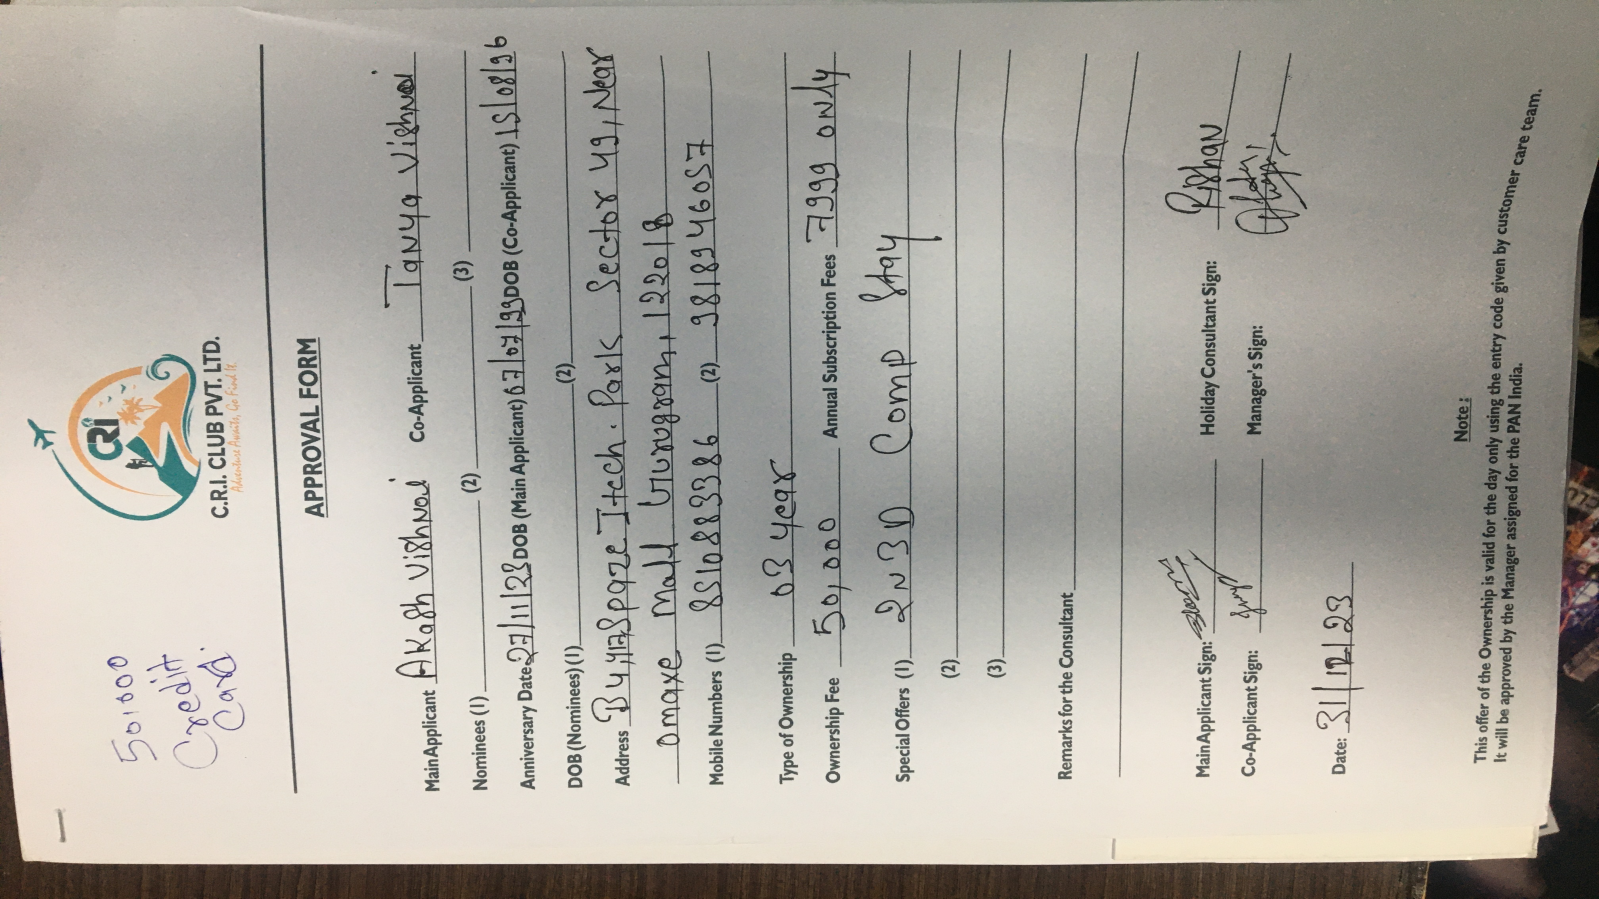 50,000
Credit
Card.
CRI
C.R.I. CLUB PVT. LTD.
Adventure Awaits, Go Find It.
APPROVAL FORM
Main Applicant Akash Vishnoi Co-Applicant Tanya Vishnoi
Nominees (1) (2) (3)
Anniversary Date 27/11/23 DOB (Main Applicant) 07/07/93 DOB (Co-Applicant) 15/08/96
DOB (Nominees) (1) (2)
Address B4, 417, Spaze Itech. Park Sector 49, Near
omaxe Mall Gurugram, 122018
Mobile Numbers (1) 8510883386 (2) 9818946057
Type of Ownership 03 year
Ownership Fee 50,000 Annual Subscription Fees 7999 only
Special Offers (1) 2N 3D Comp Stay
(2)
(3)
Remarks for the Consultant
Main Applicant Sign: Holiday Consultant Sign: Rishan
Co-Applicant Sign: Manager's Sign:
Date: 31/12/23
Note :
This offer of the Ownership is valid for the day only using the entry code given by customer care team.
It will be approved by the Manager assigned for the PAN India.